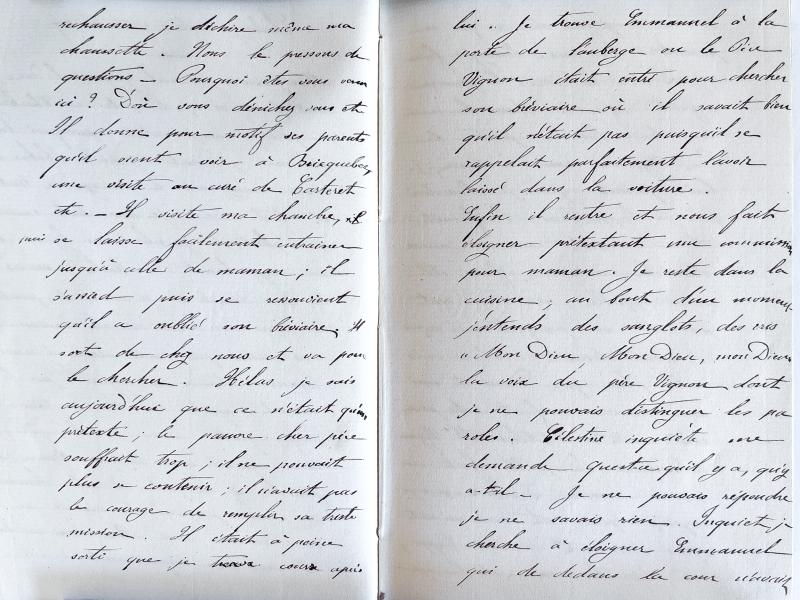 rechausser je déchire même ma
chaussette. Nous le pressons de
questions – Pourquoi êtes vous venu
ici ? D'où vous dénichez vous etc
Il donne pour motif ses parents
qu'il vient voir à Bricquebec,
une visite au curé de Carteret
etc. – Il visite ma chambre, il
puis se laisse facilement entrainer
jusqu'à celle de maman ; il
s'assied puis se ressouvient
qu'il a oublié son bréviaire, il
sort de chez nous et va pour
le chercher. Hélas je sais
aujourd'hui que ce n'était qu'un
prétexte ; le pauvre cher père
souffrait trop ; il ne pouvait
plus se contenir ; il n'avait pas
le courage de remplir sa triste
mission. Il était à peine
sorti que je cours après
lui.. Je trouve Emmanuel à la
porte de l'auberge ou le Père
Vignon était entré pour chercher
son bréviaire où il savait bien
qu'il n'était pas puisqu'il se
rappelait parfaitement l'avoir
laissé dans la voiture.
Enfin il rentre et nous fait
éloigner prétextant une commission
pour maman. Je reste dans la
cuisine ; au bout d'un moment
j'entends des sanglots, des cris
"Mon Dieu, Mon Dieu, mon Dieu
la voix du père Vignon dont
je ne pouvais distinguer les pa
roles. Célestine inquiète me
demande Qu'est-ce qu'il y a, qu'y
a-t-il – Je ne pouvais répondre
je ne savais rien. Inquiet, je
cherche à éloigner Emmanuel
qui de dedans la cour n'avait